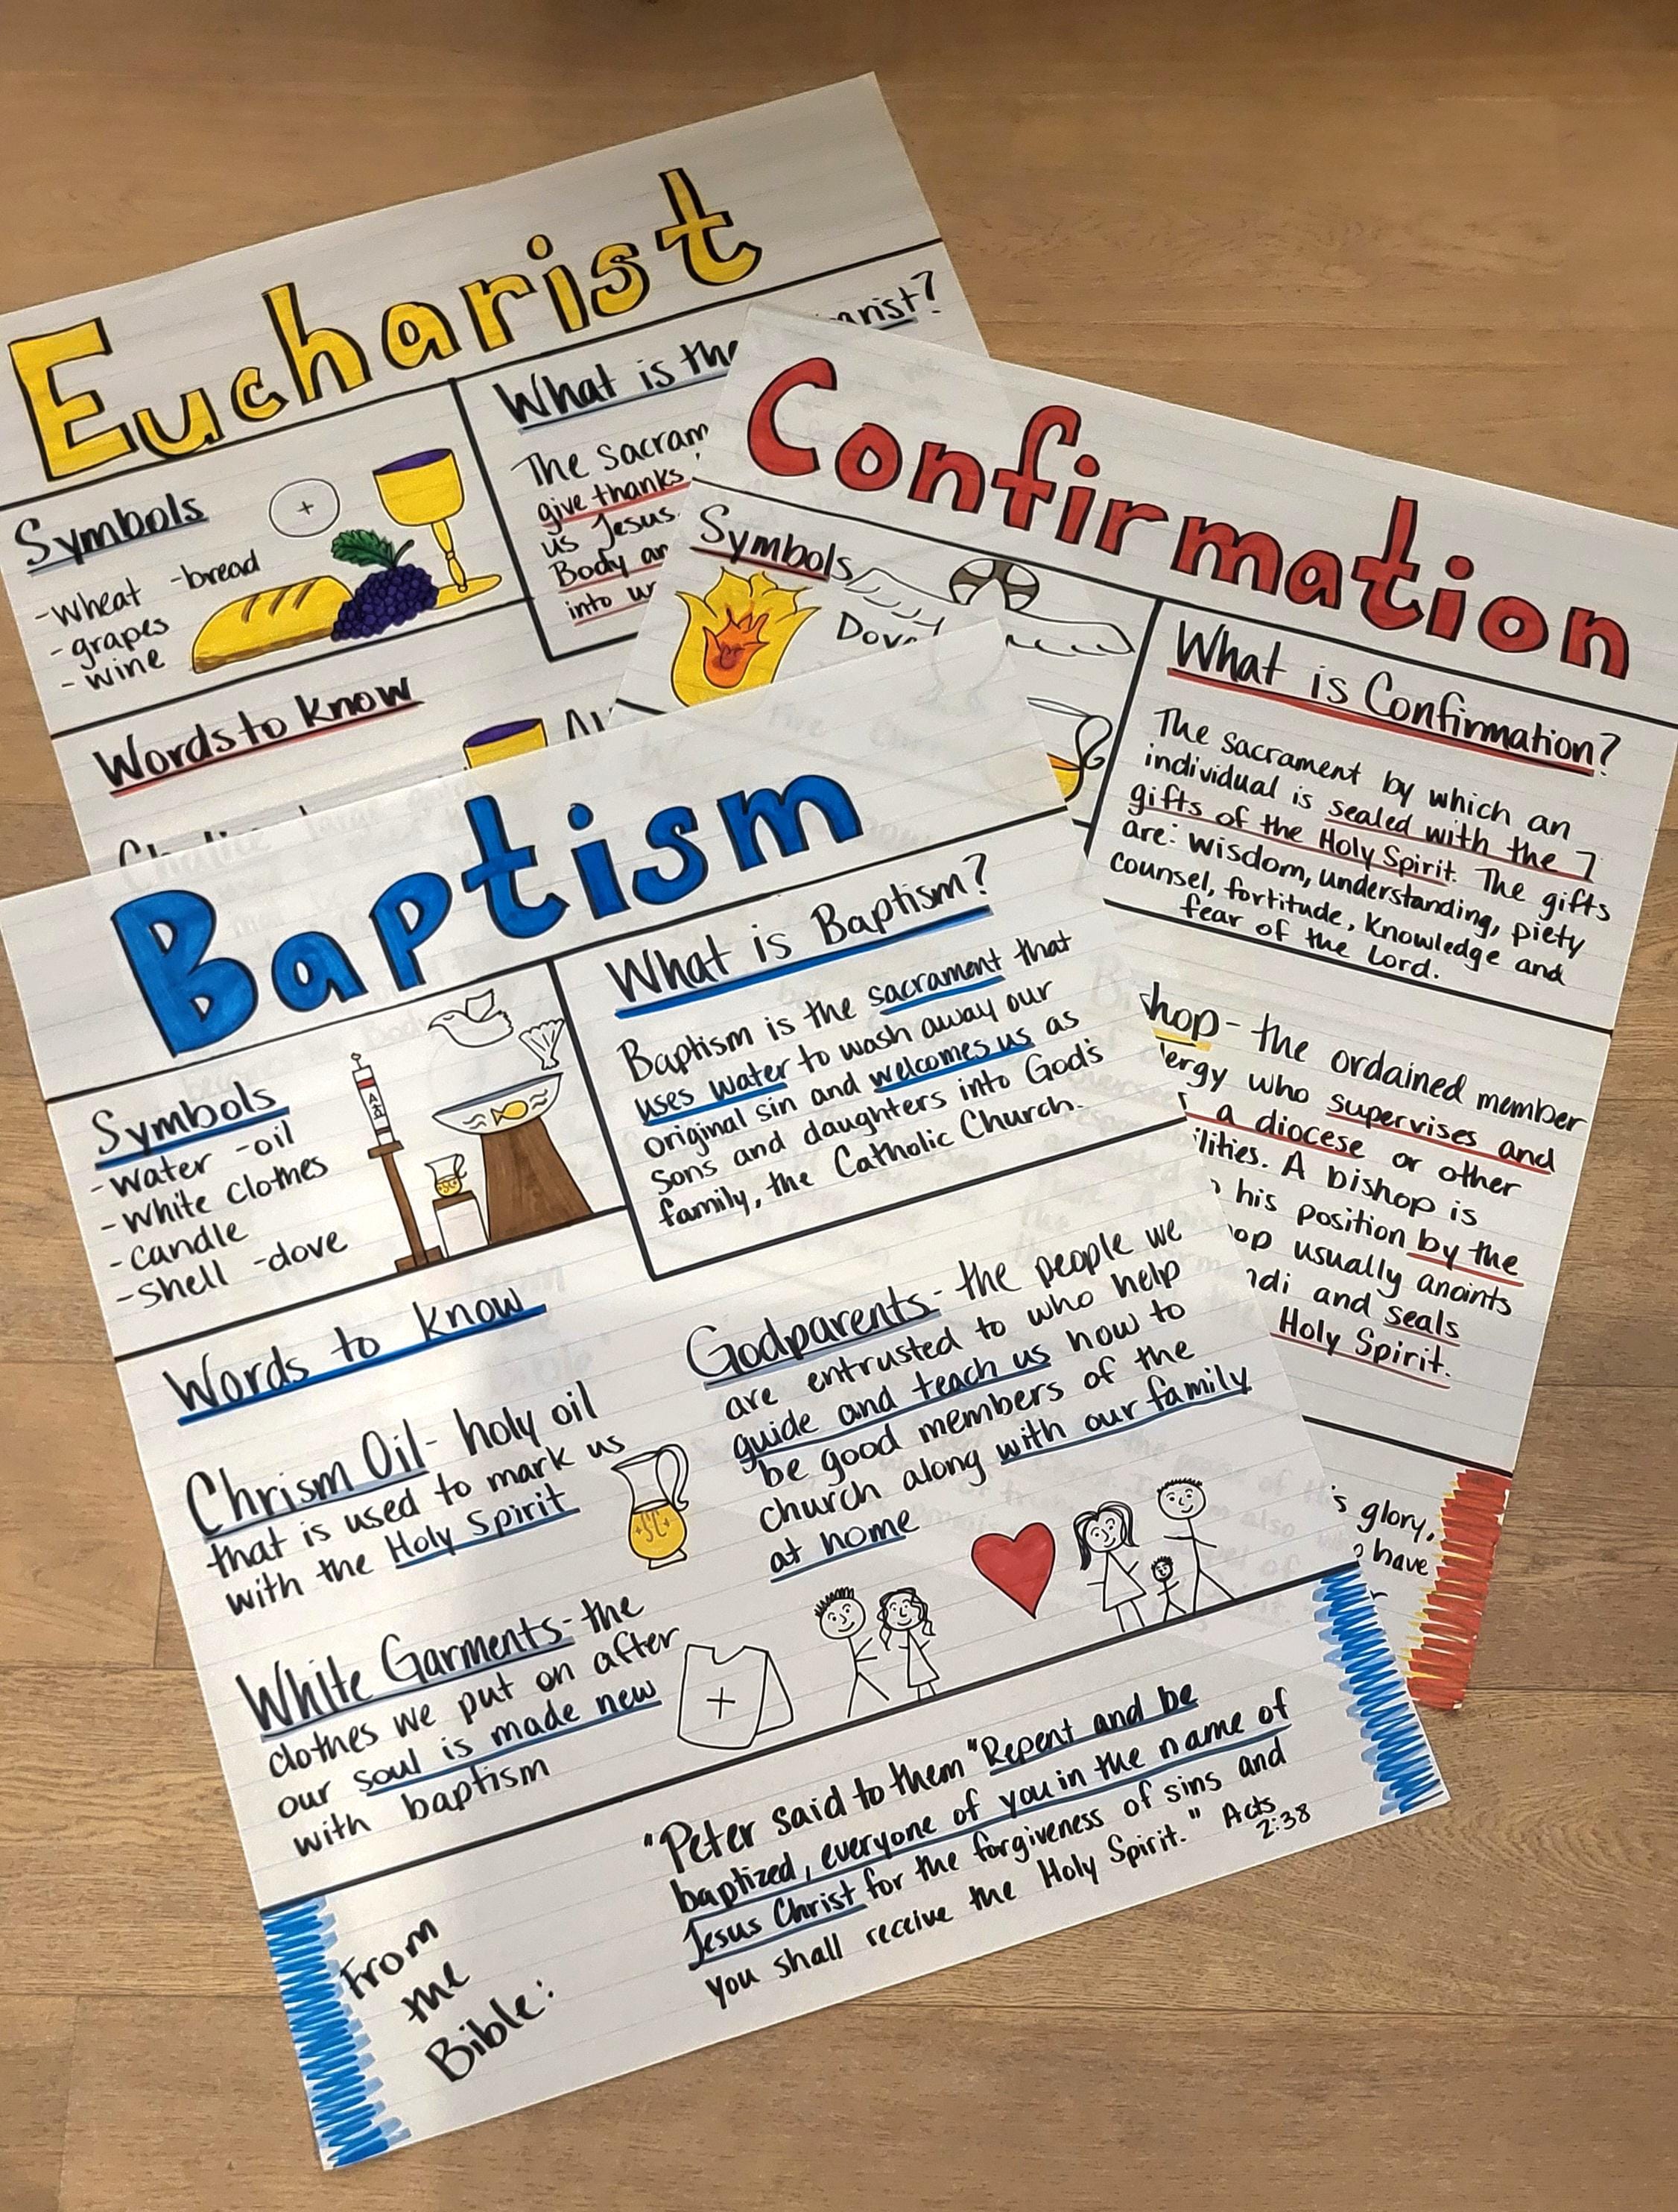 Eucharist
Symbols
-wheat -bread
-grapes
-wine
What is the
arist?
The Sacram
give thanks
us Jesus.
Body an
into
Words to know
Confirmation
Symbols
Dove
Fire
What is Confirmation?
The sacrament by which an
individual is sealed with the 7
gifts of the Holy Spirit. The gifts
are: wisdom, understanding, piety
counsel, fortitude, knowledge and
fear of the Lord.
shop- the ordained member
lergy who supervises and
a diocese or other
ilities. A bishop is
his position by the
op usually anoints
ndi and seals
Holy Spirit.
's glory,
have
Baptism
Symbols
-water -oil
-white clothes
-candle
-shell -dove
What is Baptism?
Baptism is the sacrament that
uses water to wash away our
original sin and welcomes us as
sons and daughters into God's
family, the Catholic Church.
Words to know
Chrism Oil- holy oil
that is used to mark us
with the Holy Spirit
SC
White Garments- the
clothes we put on after
our soul is made new
with baptism
Godparents- the people we
are entrusted to who help
guide and teach us how to
be good members of the
church along with our family
at home
From
the
Bible:
"Peter said to them "Repent and be
baptized, everyone of you in the name of
Jesus Christ for the forgiveness of sins and
you shall receive the Holy Spirit." Acts
2:38